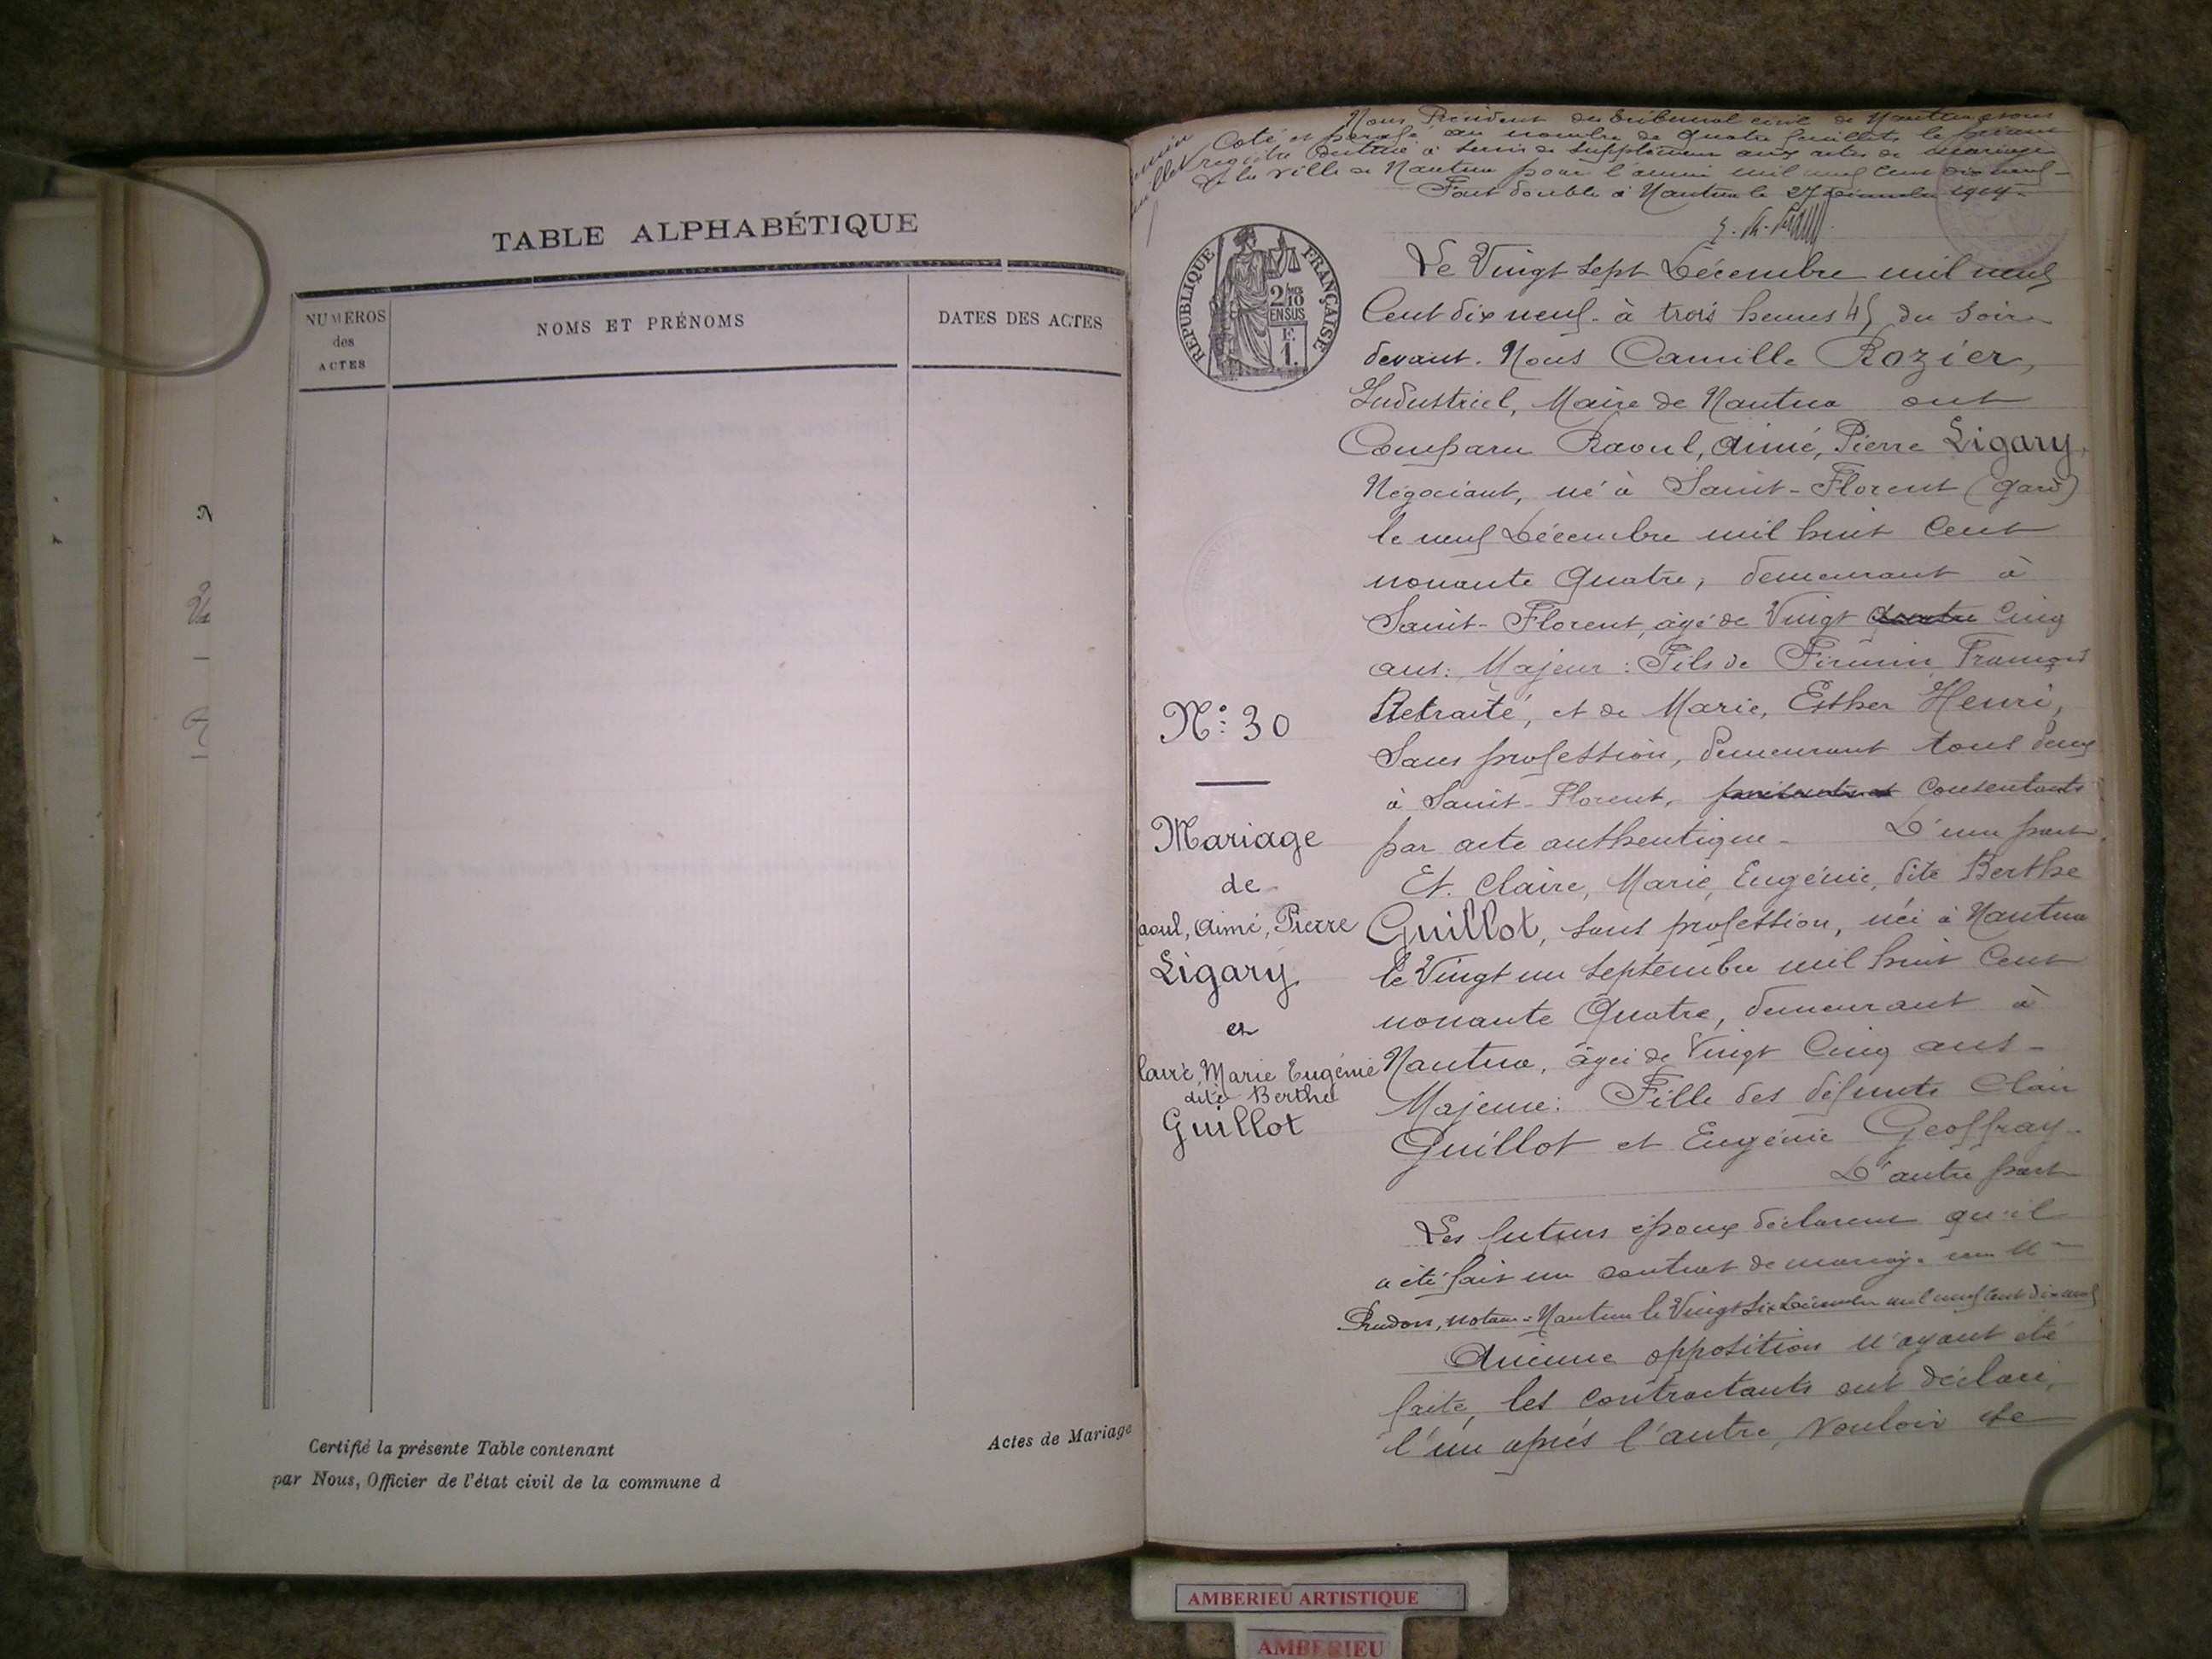 TABLE ALPHABÉTIQUE
NUMÉROS
des
ACTES
NOMS ET PRÉNOMS
DATES DES ACTES
Certifié la présente Table contenant
Actes de Mariage
par Nous, Officier de l'état civil de la commune d
Nous Président du tribunal civil de Nantua avons
Coté et paraphé au nombre de quatre feuillets le présent
registre destiné à servir de supplément aux actes de mariage
de la ville de Nantua pour l'année mil neuf cent dix neuf -
Fait double à Nantua le 27 décembre 1919.
RÉPUBLIQUE FRANÇAISE
2/10 MES
EN SUS
1.
Le Vingt sept Décembre mil neuf
Cent dix neuf - à trois heures 45 du soir
devant Nous Camille Rozier,
Industriel, Maire de Nantua ont
Comparu Raoul, Aimé, Pierre Ligary,
Négociant, né à Saint-Florent (Gard)
le neuf Décembre mil huit Cent
nonante Quatre, demeurant à
Saint-Florent, âgé de Vingt quatre Cinq
ans: Majeur: Fils de Firmin François
Retraité, et de Marie, Esther Henri,
Sans profession, demeurant tous deux
à Saint-Florent, consentants
par acte authentique - D'une part.
Et Claire, Marie, Eugénie, dite Berthe
Guillot, sans profession, née à Nantua
le Vingt un Septembre mil huit Cent
nonante Quatre, demeurant à
Nantua, âgée de Vingt Cinq ans -
Majeure: Fille des défunts Clair
Guillot et Eugénie Geoffray -
D'autre part
Les futurs époux déclarent qu'il
a été fait un contrat de mariage
notaire à Nantua le Vingt Six Décembre mil neuf Cent dix neuf
Aucune opposition n'ayant été
faite, les contractants ont déclaré,
l'un après l'autre, vouloir se
N° 30
Mariage
de
aoul, Aimé, Pierre
Ligary
et
laire, Marie Eugénie
dite Berthe
Guillot
AMBERIEU ARTISTIQUE
AMBERIEU